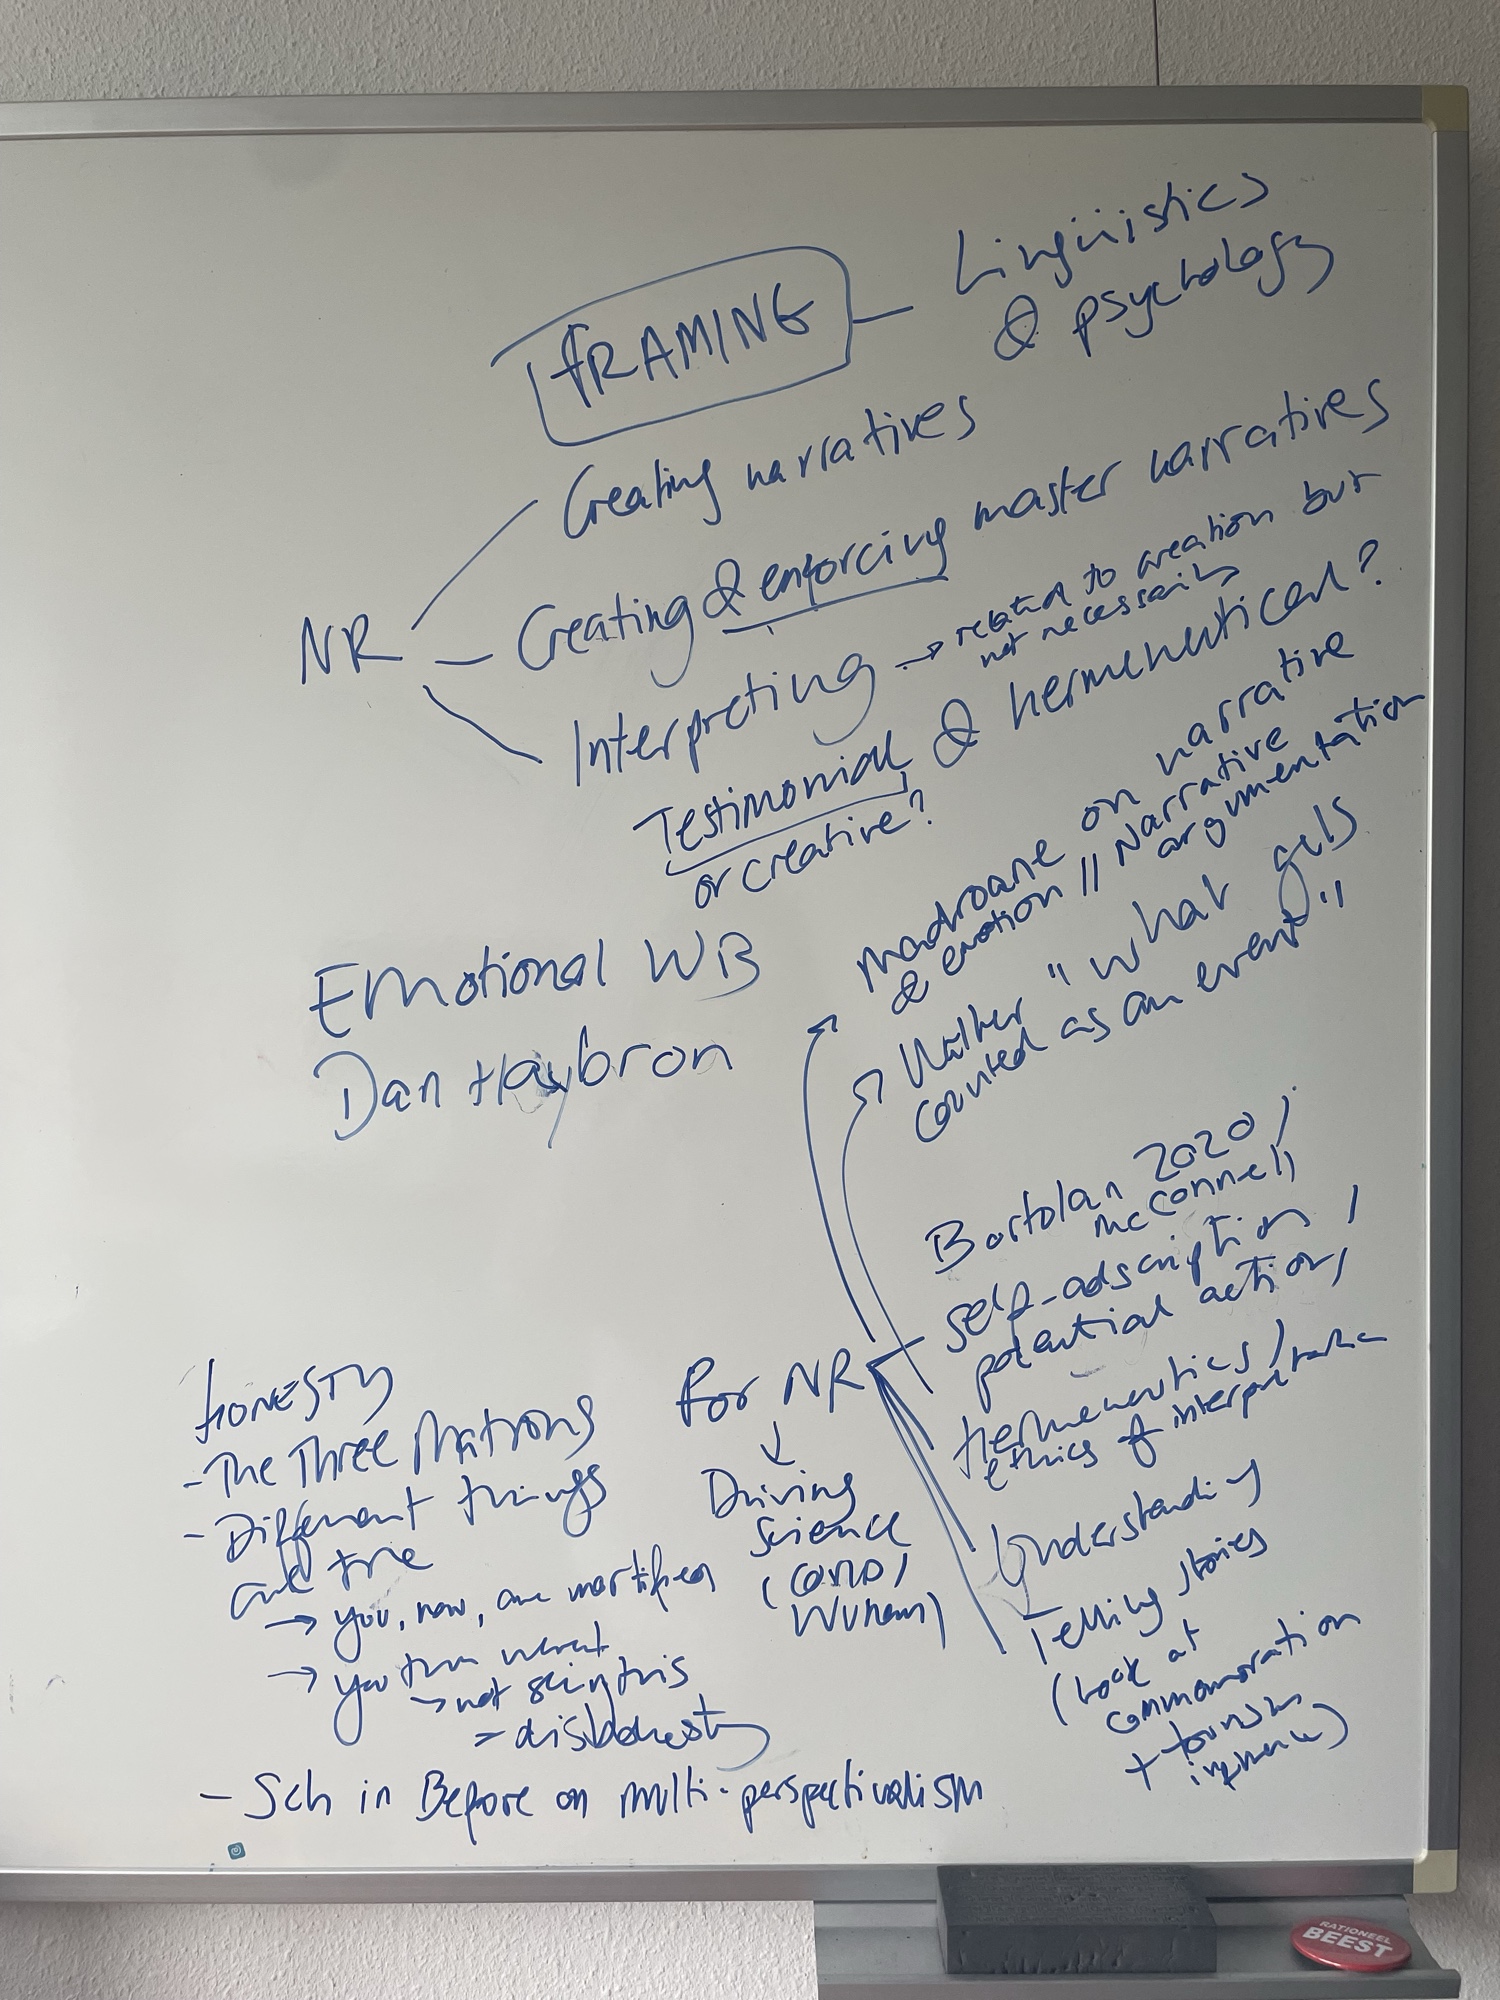 FRAMING
Lingüistics
& psychology
NR
Creating narratives
Creating & enforcing master narratives
Interpreting → related to creation but
not necessarily
Testimonial & hermeneutical?
or creative?
Emotional WB
Dan Haybron
Madroane on narrative
& emotion // Narrative
argumentation
"what gets
counted as an event"
Bortolan 2020,
McConnell
self-adscription,
potential action,
Hermeneutics,
ethics of interpretation
Understanding
Telling stories
(look at
commemoration
+ tourism
for NR
↓
Driving
Science
(COVID,
Wuhan)
HONESTY
- The Three Matrons
- Different things
are true
→ you, now, are mortified
→ you then weren't
→ not seeing this
= dishonesty
- Sch in Before on multi-perspectivalism
RATIONEEL
BEEST